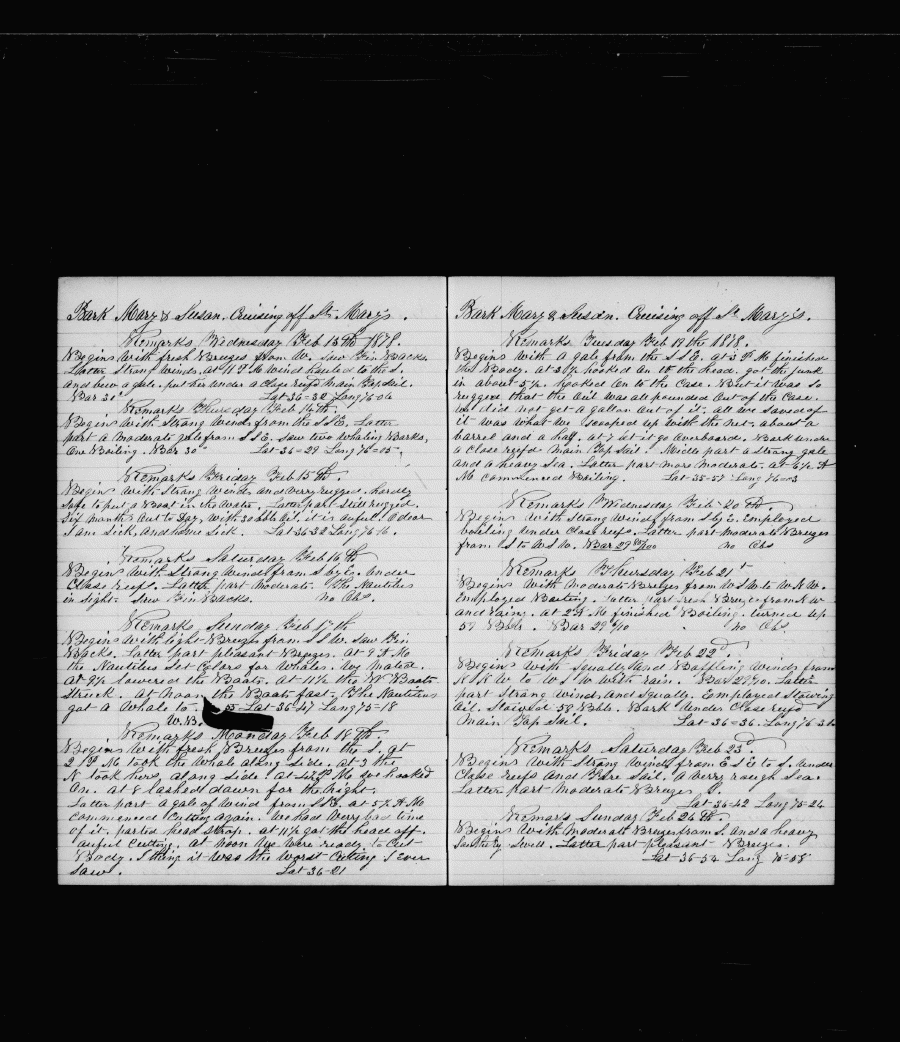 Bark Mary & Susan. Cruising off St. Mary's.
Remarks Wednesday Feb 13th 1878.
Begins with fresh Breezes from W. Saw Fin Backs.
Latter Strong winds, at 11 P.M. wind hauled to the S.
and blew a gale. put her under a Close reefd Main Top Sail.
Bar 30° Lat 36-38 Long 76-06
Remarks Thursday Feb 14th.
Begins with Strong winds from the SSE. Latter
part a moderate gale from SSE. Saw two Whaling Barks,
One Boiling. Bar 30° Lat 36-29 Long 76-05
Remarks Friday Feb 15th.
Begins with Strong winds and very rugged. hardly
safe to put a Boat in the water. Latter part still rugged.
Six months out to Day, with 30 bbls Oil, it is awful. O dear
I am sick, and home sick. Lat 36-32 Long 76-16.
Remarks Saturday Feb 16th
Begins with Strong winds from S by E. under
Close reefs. Latter part moderate. The Nautilus
in sight. Saw Fin Backs. no Obs.
Remarks Sunday Feb 17th
Begins with light Breezes from SSW. Saw Fin
Backs. Latter part pleasant Breezes. at 9 A.M.
the Nautilus Set Colors for Whales. We mated.
at 9½ lowered the Boats. at 11½ the W Boats
Struck. at noon the Boats fast. The Nautilus
got a Whale to. Lat 36-47 Long 75-18
W.B.
Remarks Monday Feb 18th.
Begins with fresh Breezes from the S. at
2 P.M. took the whale along side. at 3 the
N took hers, along side. at 4½ P.M. we hooked
On. at 8 lashed down for the night.
Latter part a gale of wind from SSE. at 5½ A.M.
commenced Cutting again. We had very bad time
of it. parted head strap. at 11½ got the head off.
awful Cutting. at noon We were ready to Cut
Body. I thing it was the worst Cutting I ever
saw. Lat 36-21
Bark Mary & Susan. Cruising off St Mary's.
Remarks Tuesday Feb 19th 1878.
Begins with a gale from the SSE. at 3 P.M. finished
the Body. at 3½ hooked On to the head. got the junk
in about 5½. hooked On to the Case. But it was so
rugged that the Oil was all pounded Out of the Case.
we did not get a gallon Out of it. all we saved of
it was what we scooped up with the net. about a
barrel and a half. at 7 let it go Overboard. Bark under
a Close reefd Main Top Sail. Middle part a strong gale
and a heavy Sea. Latter part more moderate. at 6½ A
M. commenced Boiling. Lat 35-57 Long 76-03
Remarks Wednesday Feb 20th.
Begins with Strong winds from S by E. Employed
boiling under Close reefs. Latter part moderate Breezes
from S to WSW. Bar 29 85/100 no Obs
Remarks Thursday Feb 21st
Begins with moderate Breezes from WSW to WNW.
Employed Boiling. Latter part fresh Breezes from NW
and rainy. at 2 A.M. finished Boiling. turned up
57 Bbls. Bar 29 90 no Obs.
Remarks Friday Feb 22d.
Begins with Squally and Baffling winds from
NNW to WSW with rain. Bar 29 90. Latter
part Strong winds and squally. Employed Stowing
Oil. Stowed 58 Bbls. Bark under Close reefd
Main Top Sail. Lat 36-36. Long 76-32
Remarks Saturday Feb 23d.
Begins with Strong winds from ESE to S. under
Close reefs and Fore Sail. a very rough Sea.
Latter part moderate Breezes S.
Lat 36-42 Long 75-26
Remarks Sunday Feb 24th.
Begins with moderate Breezes from S. and a heavy
Southerly Swell. Latter part pleasant Breezes.
Lat 36-54 Long 75-58